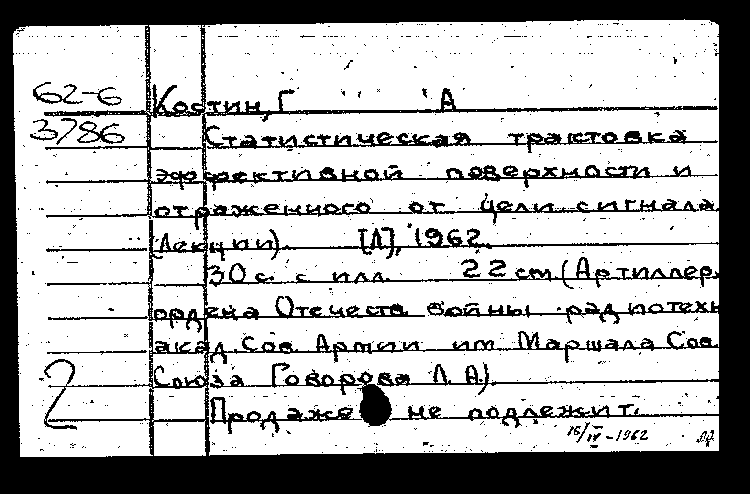 62-6 Костин, Г А
3786 Статистическая трактовка
эффективной поверхности и
отраженного от цели сигнала.
(Лекции). [Л], 1962.
30 с. с илл. 22 см (Артиллер.
ордена Отечеств войны радиотехн
акад. Сов. Армии им Маршала Сов.
Союза Говорова Л. А.).
2 Продаже не подлежит.
16/IV-1962